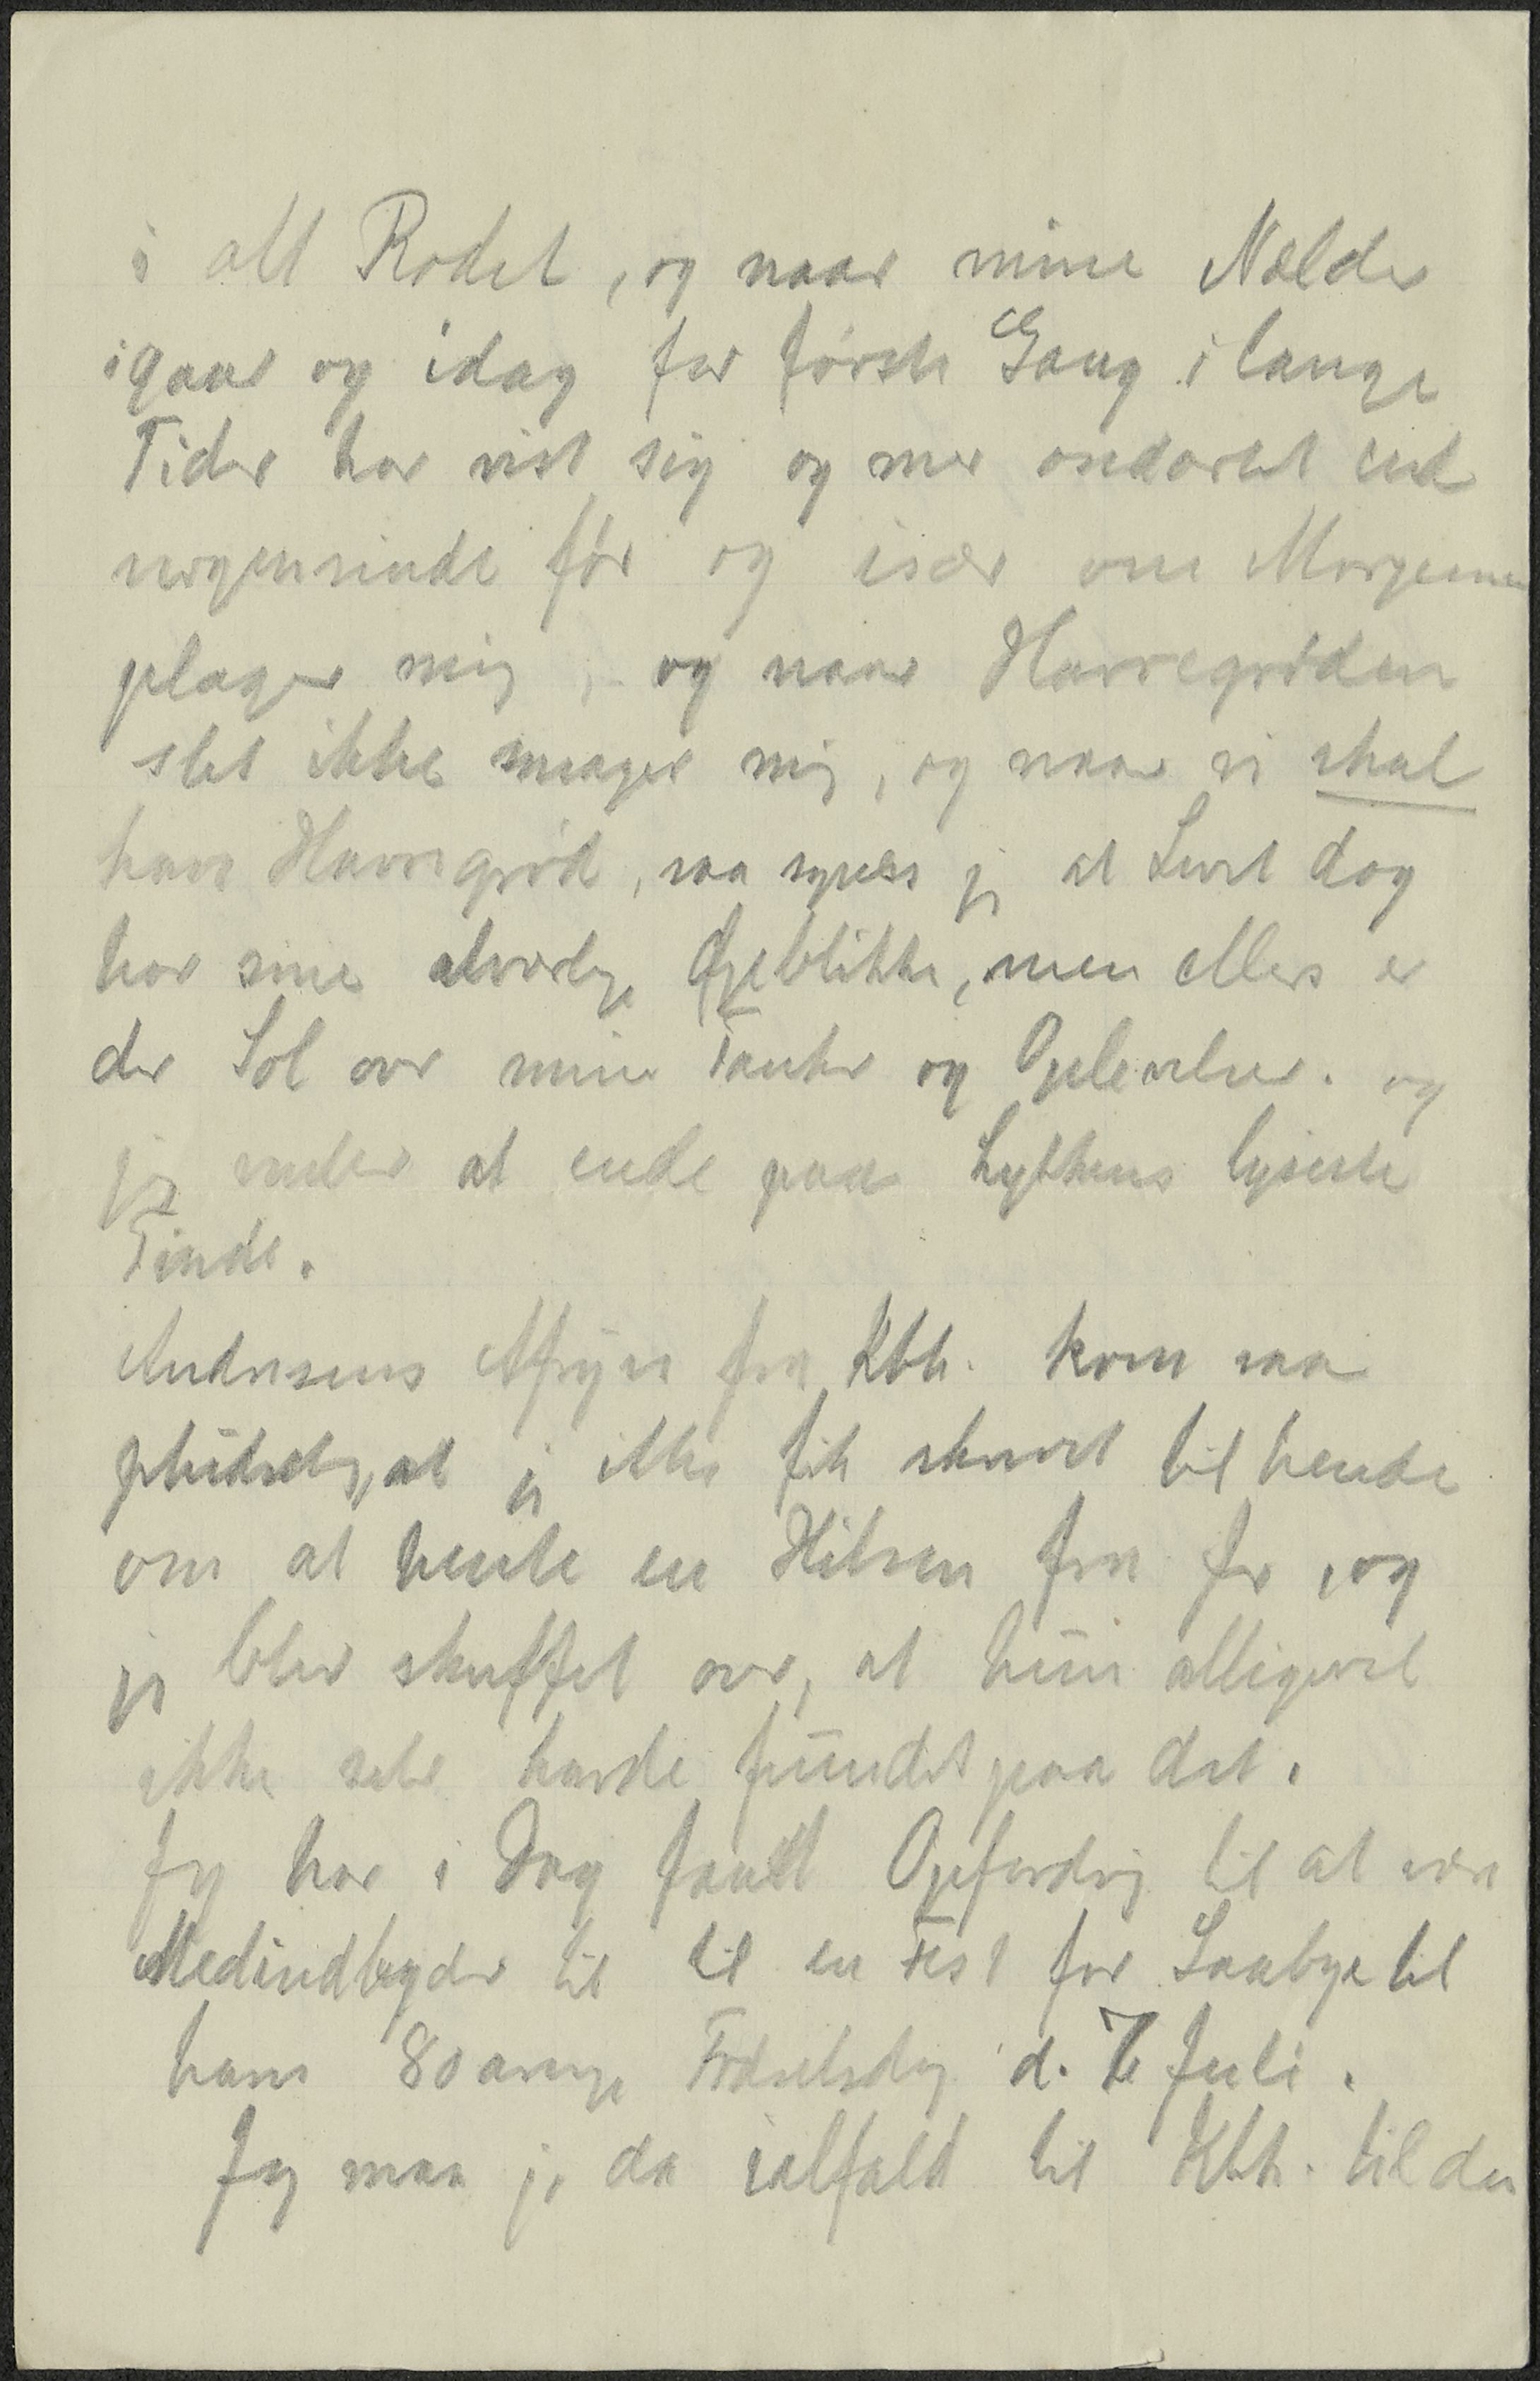 i alt Rodet, og naar mine Nælder
igaar og idag for første Gang i lange
Tider har vist sig og mer ondartet end
nogensinde før og især om Morgenen
plager mig, og naar Havregrøden
slet ikke smager mig, og naar vi skal
have Havregrød, saa synes jeg at Livet dog
har sine alvorlige Øjeblikke, men ellers er
der Sol over mine Tanker og Oplevelser. og
jeg ender at ende paa Lykkens lyseste
Tinde.
Andresens Afrejse fra Kbh. kom saa
pludselig, at jeg ikke fik skrevet til hende
om at hente en Hilsen fra før, og
jeg blev skuffet over, at hun alligevel
ikke selv havde fundet paa det.
Jeg har i Dag faaet Opfordring til at være
Medindbyder til til en Fest for Saabye til
hans 80 aarige Fødselsdag d. 7 Juli.
Jeg maa jo da ialfald til Kbh. til den